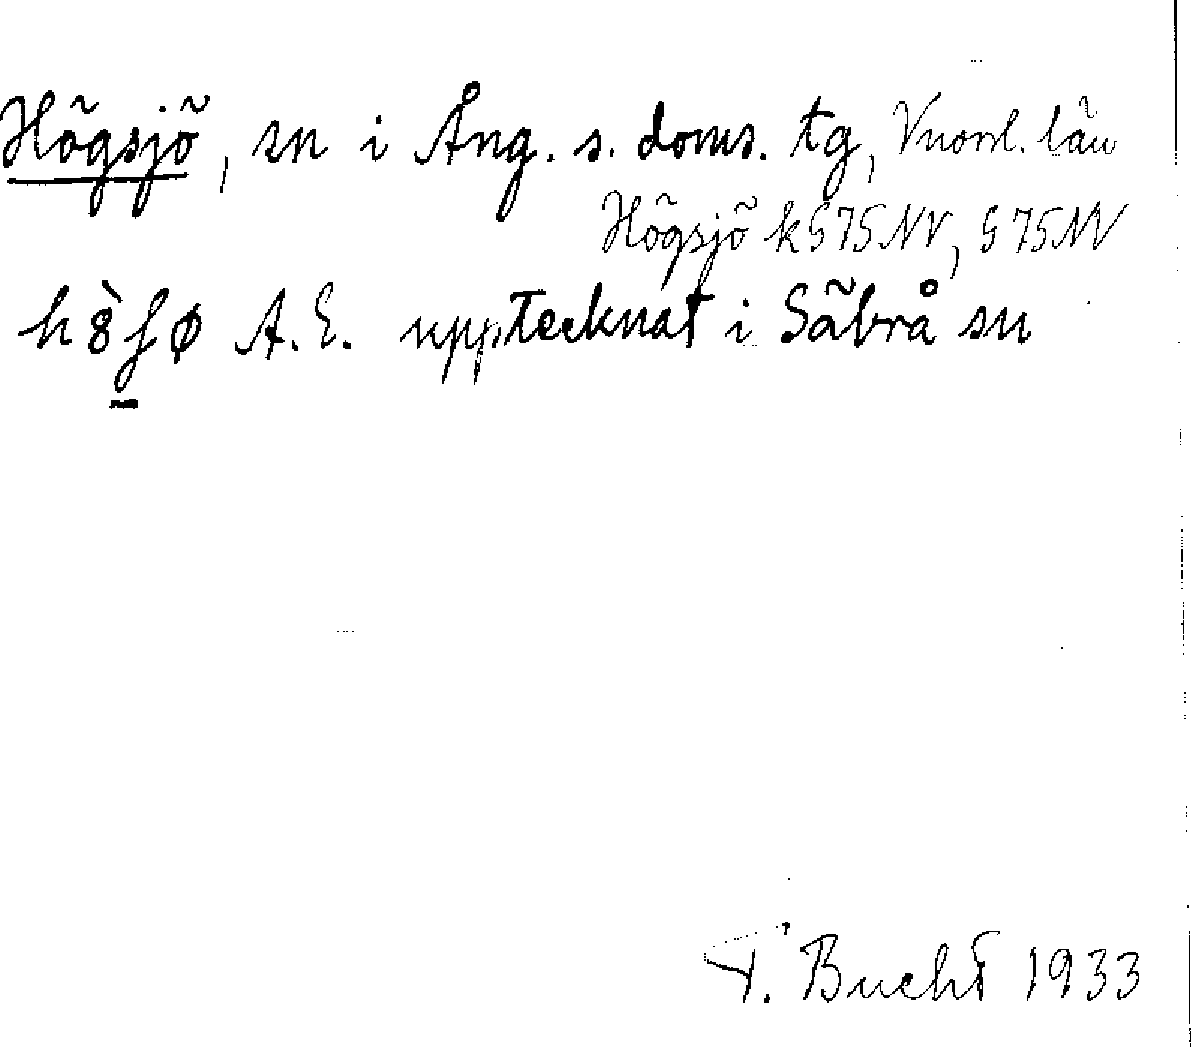 Högsjö, sn i Ång. s. doms. tg, Vnorrl. län
Högsjö k G75NV, G75NV
A.E. upptecknat i Säbrå sn
T. Bucht 1933